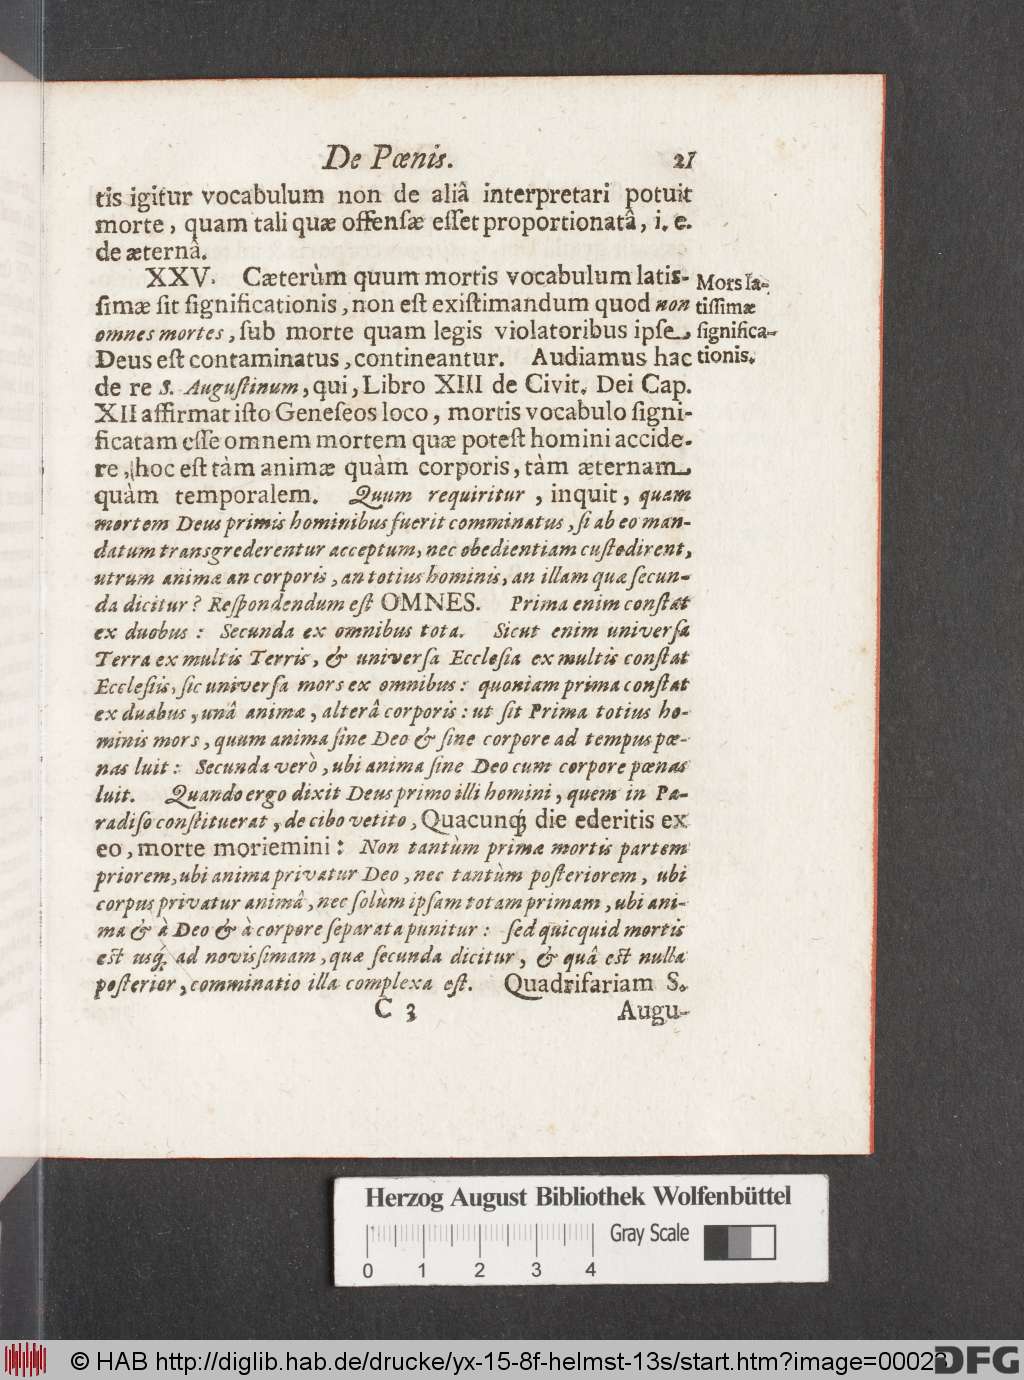 De Pœnis. 21
tis igitur vocabulum non de aliâ interpretari potuit
morte, quam tali quæ offensæ esset proportionatâ, i. e.
de æternâ.
XXV. Cæterùm quum mortis vocabulum latis-
simæ sit significationis, non est existimandum quod non
omnes mortes, sub morte quam legis violatoribus ipse
Deus est contaminatus, contineantur. Audiamus hac
de re S. Augustinum, qui, Libro XIII de Civit. Dei Cap.
XII affirmat isto Geneseos loco, mortis vocabulo signi-
ficatam esse omnem mortem quæ potest homini accide-
re, hoc est tàm animæ quàm corporis, tàm æternam
quàm temporalem. Quum requiritur, inquit, quam
mortem Deus primis hominibus fuerit comminatus, si ab eo man-
datum transgrederentur acceptum, nec obedientiam custodirent,
utrum animæ an corporis, an totius hominis, an illam quæ secun-
da dicitur? Respondendum est OMNES. Prima enim constat
ex duobus: Secunda ex omnibus tota. Sicut enim universa
Terra ex multis Terris, & universa Ecclesia ex multis constat
Ecclesiis, sic universa mors ex omnibus: quoniam prima constat
ex duabus, unâ animæ, alterâ corporis: ut sit Prima totius ho-
minis mors, quum anima sine Deo & sine corpore ad tempus pœ-
nas luit: Secunda verò, ubi anima sine Deo cum corpore pœnas
luit. Quando ergo dixit Deus primo illi homini, quem in Pa-
radiso constituerat, de cibo vetito, Quacunq; die ederitis ex
eo, morte moriemini: Non tantùm primæ mortis partem
priorem, ubi anima privatur Deo, nec tantùm posteriorem, ubi
corpus privatur animâ, nec solùm ipsam totam primam, ubi ani-
ma & à Deo & à corpore separata punitur: sed quicquid mortis
est usq; ad novissimam, quæ secunda dicitur, & quâ est nulla
posterior, comminatio illa complexa est. Quadrifariam S.
C 3 Augu-
Mors la-
tissimæ
significa-
tionis.
Herzog August Bibliothek Wolfenbüttel
Gray Scale
0 1 2 3 4
© HAB http://diglib.hab.de/drucke/yx-15-8f-helmst-13s/start.htm?image=00023
DFG